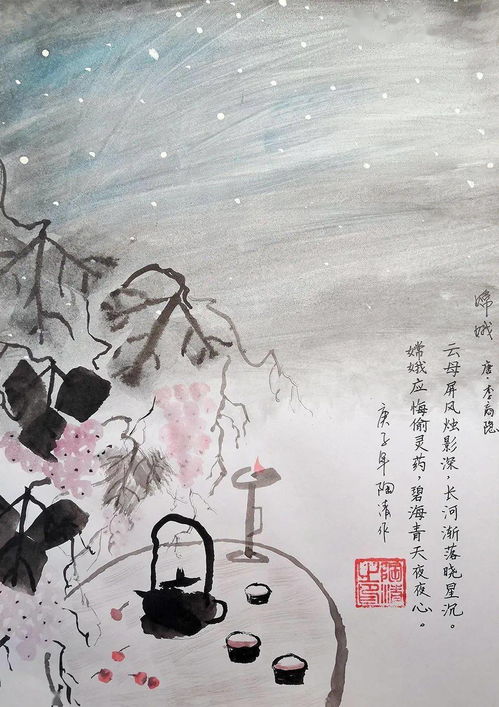 嫦娥 唐 李商隐
云母屏风烛影深，长河渐落晓星沉。
嫦娥应悔偷灵药，碧海青天夜夜心。
庚子年陶清作
陶清之印